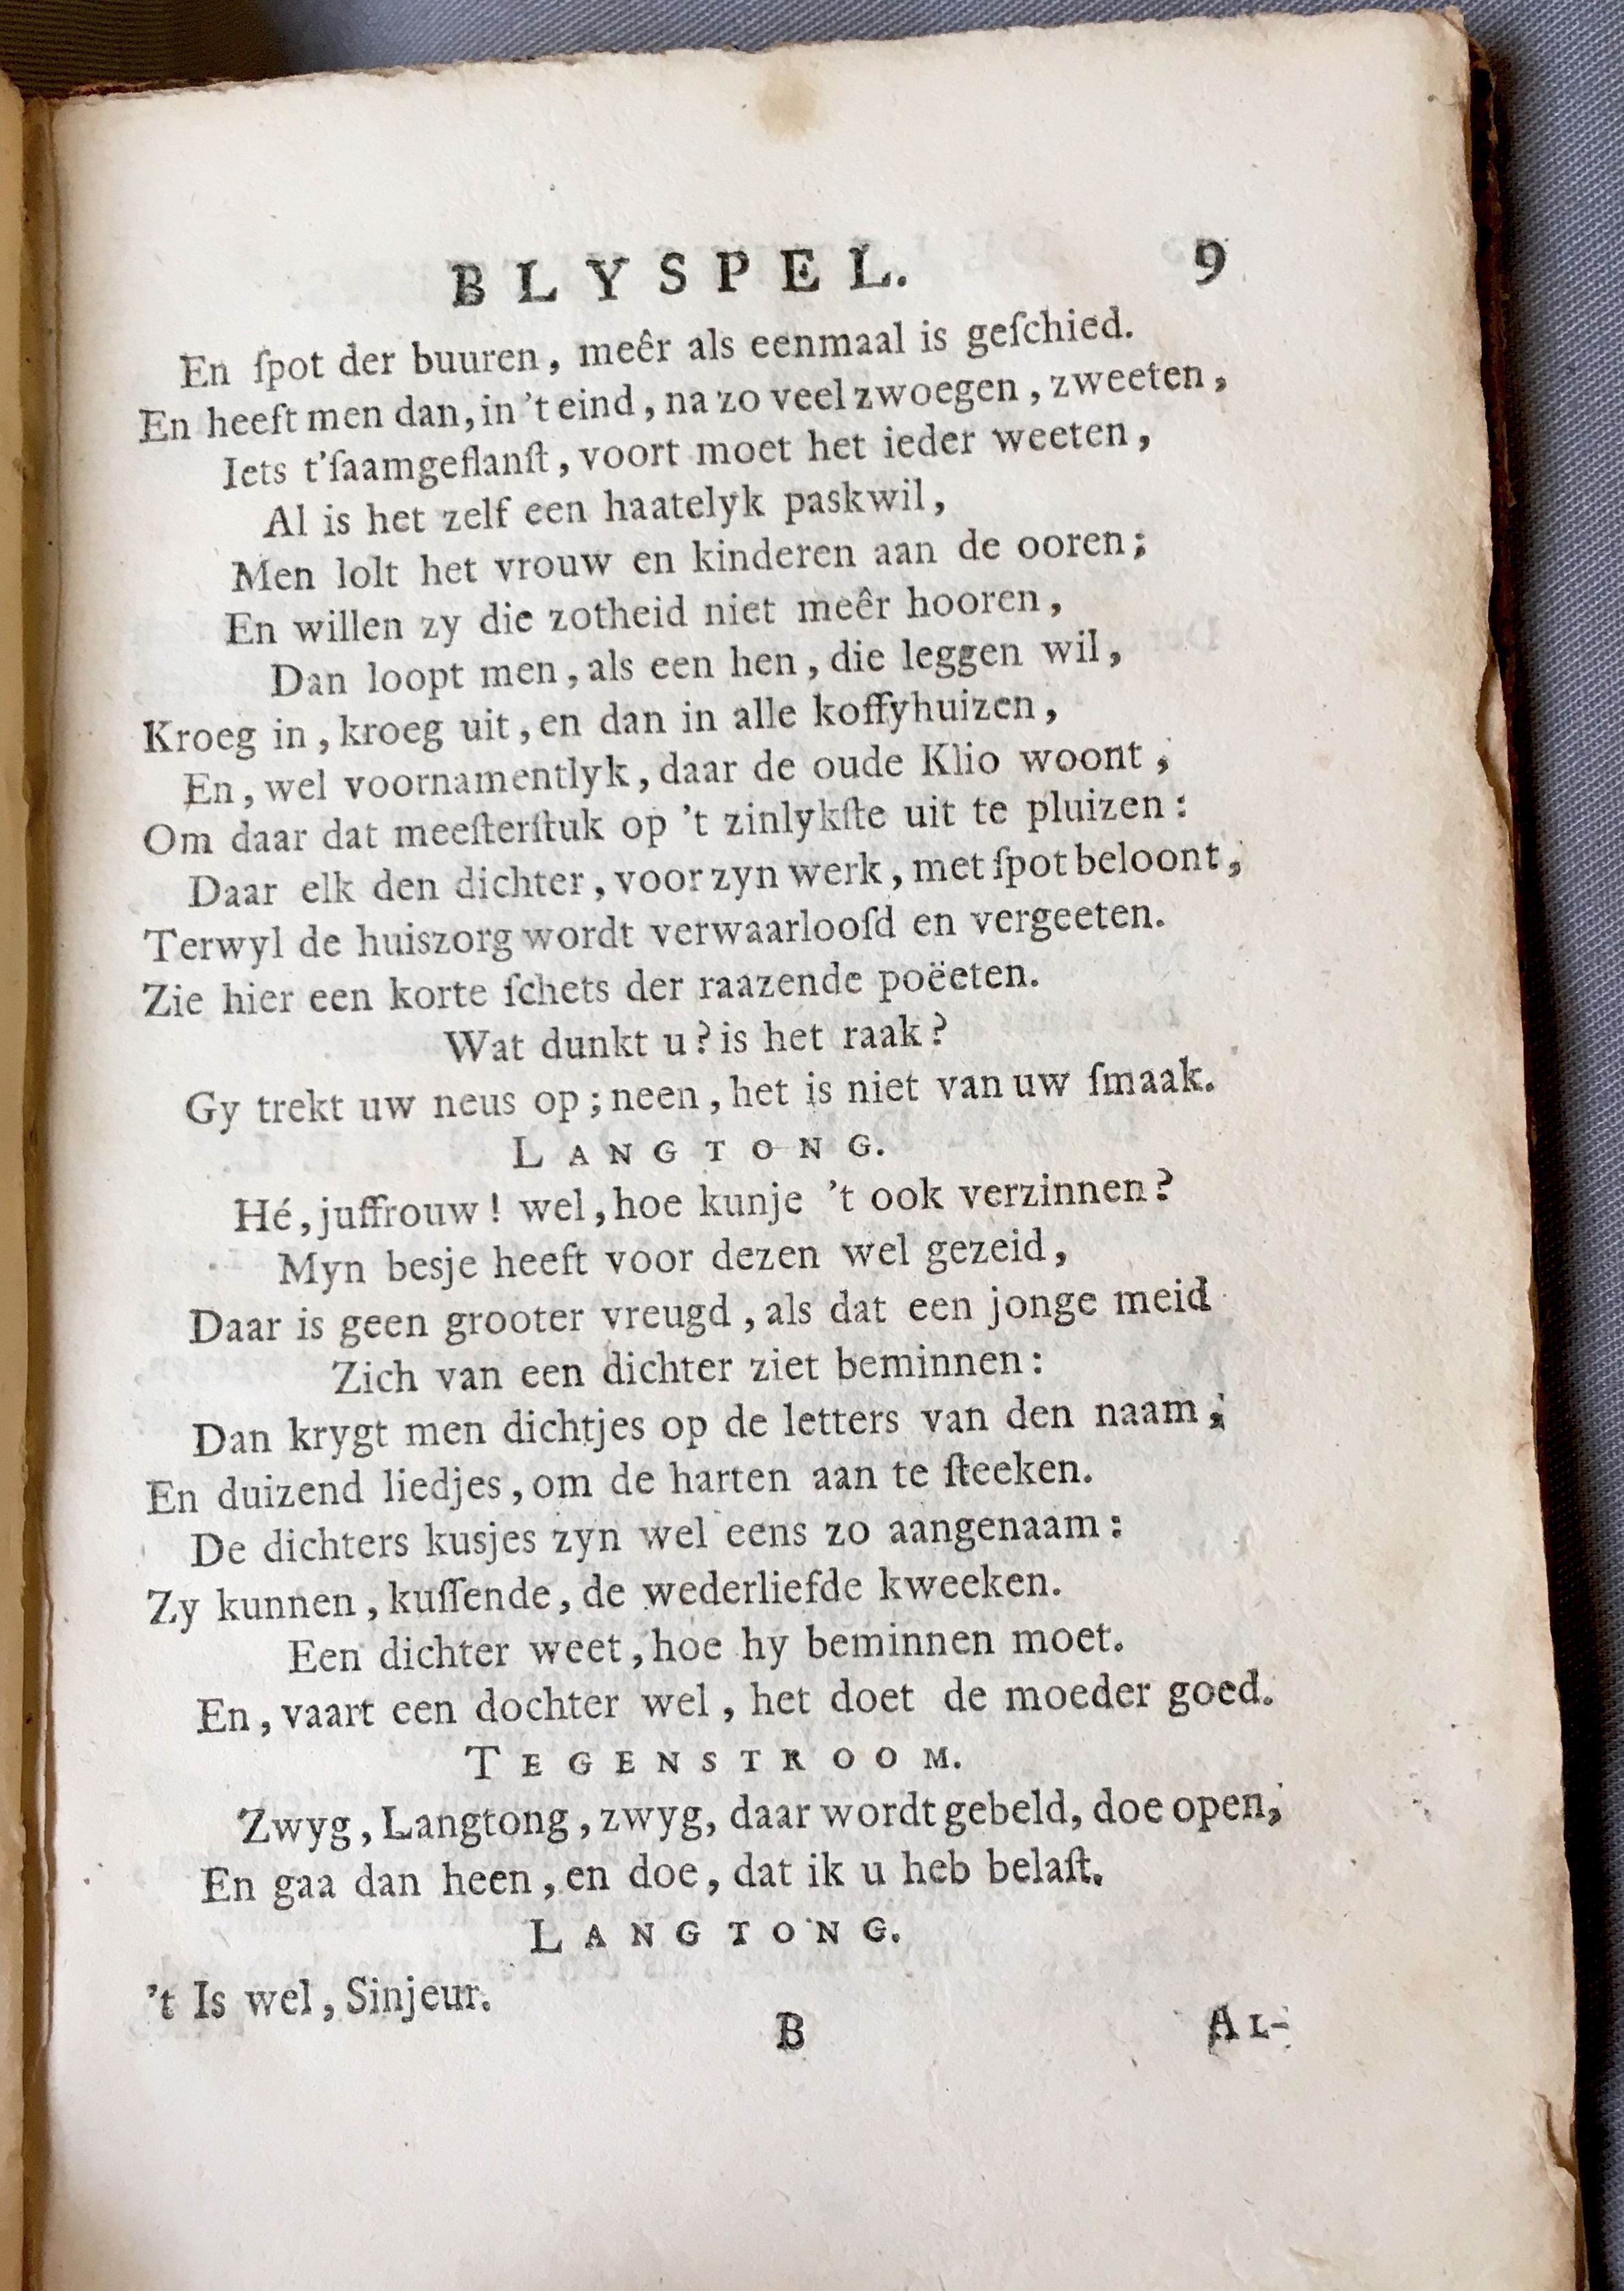 BLYSPEL. 9
En ſpot der buuren, meêr als eenmaal is geſchied.
En heeft men dan, in 't eind, na zo veel zwoegen, zweeten,
Iets t'ſaamgeflanſt, voort moet het ieder weeten,
Al is het zelf een haatelyk paskwil,
Men lolt het vrouw en kinderen aan de ooren;
En willen zy die zotheid niet meêr hooren,
Dan loopt men, als een hen, die leggen wil,
Kroeg in, kroeg uit, en dan in alle koffyhuizen,
En, wel voornamentlyk, daar de oude Klio woont,
Om daar dat meeſterſtuk op 't zinlykſte uit te pluizen:
Daar elk den dichter, voor zyn werk, met ſpot beloont,
Terwyl de huiszorg wordt verwaarlooſd en vergeeten.
Zie hier een korte ſchets der raazende poëeten.
Wat dunkt u? is het raak?
Gy trekt uw neus op; neen, het is niet van uw ſmaak.
LANGTONG.
Hé, juffrouw! wel, hoe kunje 't ook verzinnen?
Myn besje heeft voor dezen wel gezeid,
Daar is geen grooter vreugd, als dat een jonge meid
Zich van een dichter ziet beminnen:
Dan krygt men dichtjes op de letters van den naam;
En duizend liedjes, om de harten aan te ſteeken.
De dichters kusjes zyn wel eens zo aangenaam:
Zy kunnen, kuſſende, de wederliefde kweeken.
Een dichter weet, hoe hy beminnen moet.
En, vaart een dochter wel, het doet de moeder goed.
TEGENSTROOM.
Zwyg, Langtong, zwyg, daar wordt gebeld, doe open,
En gaa dan heen, en doe, dat ik u heb belaſt.
LANGTONG.
't Is wel, Sinjeur.
B AL-